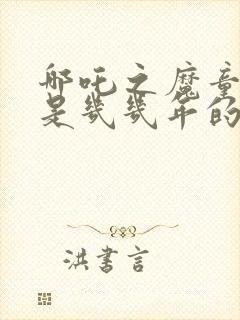 哪吒之魔童
是幾幾年的
洪書言